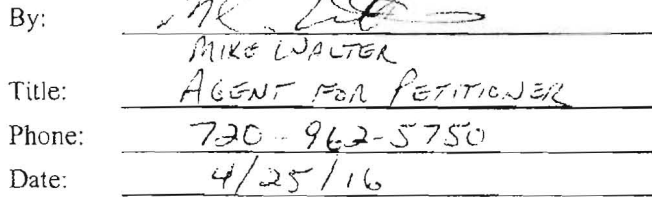 By:
MIKE WALTER
Title: AGENT FOR PETITIONER
Phone: 720-962-5750
Date: 4/25/16